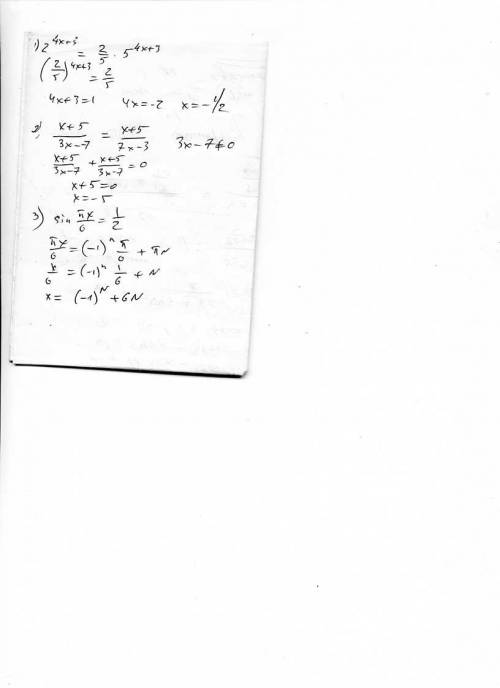 1) 2^{4x+3} = 2/5 · 5^{4x+3}
(2/5)^{4x+3} = 2/5
4x+3=1 4x=-2 x=-1/2
2) (x+5)/(3x-7) = (x+5)/(7x-3) 3x-7≠0
(x+5)/(3x-7) + (x+5)/(3x-7) = 0
x+5=0
x=-5
3) sin πx/6 = 1/2
πx/6 = (-1)^n π/6 + πN
x/6 = (-1)^n 1/6 + N
x = (-1)^N + 6N